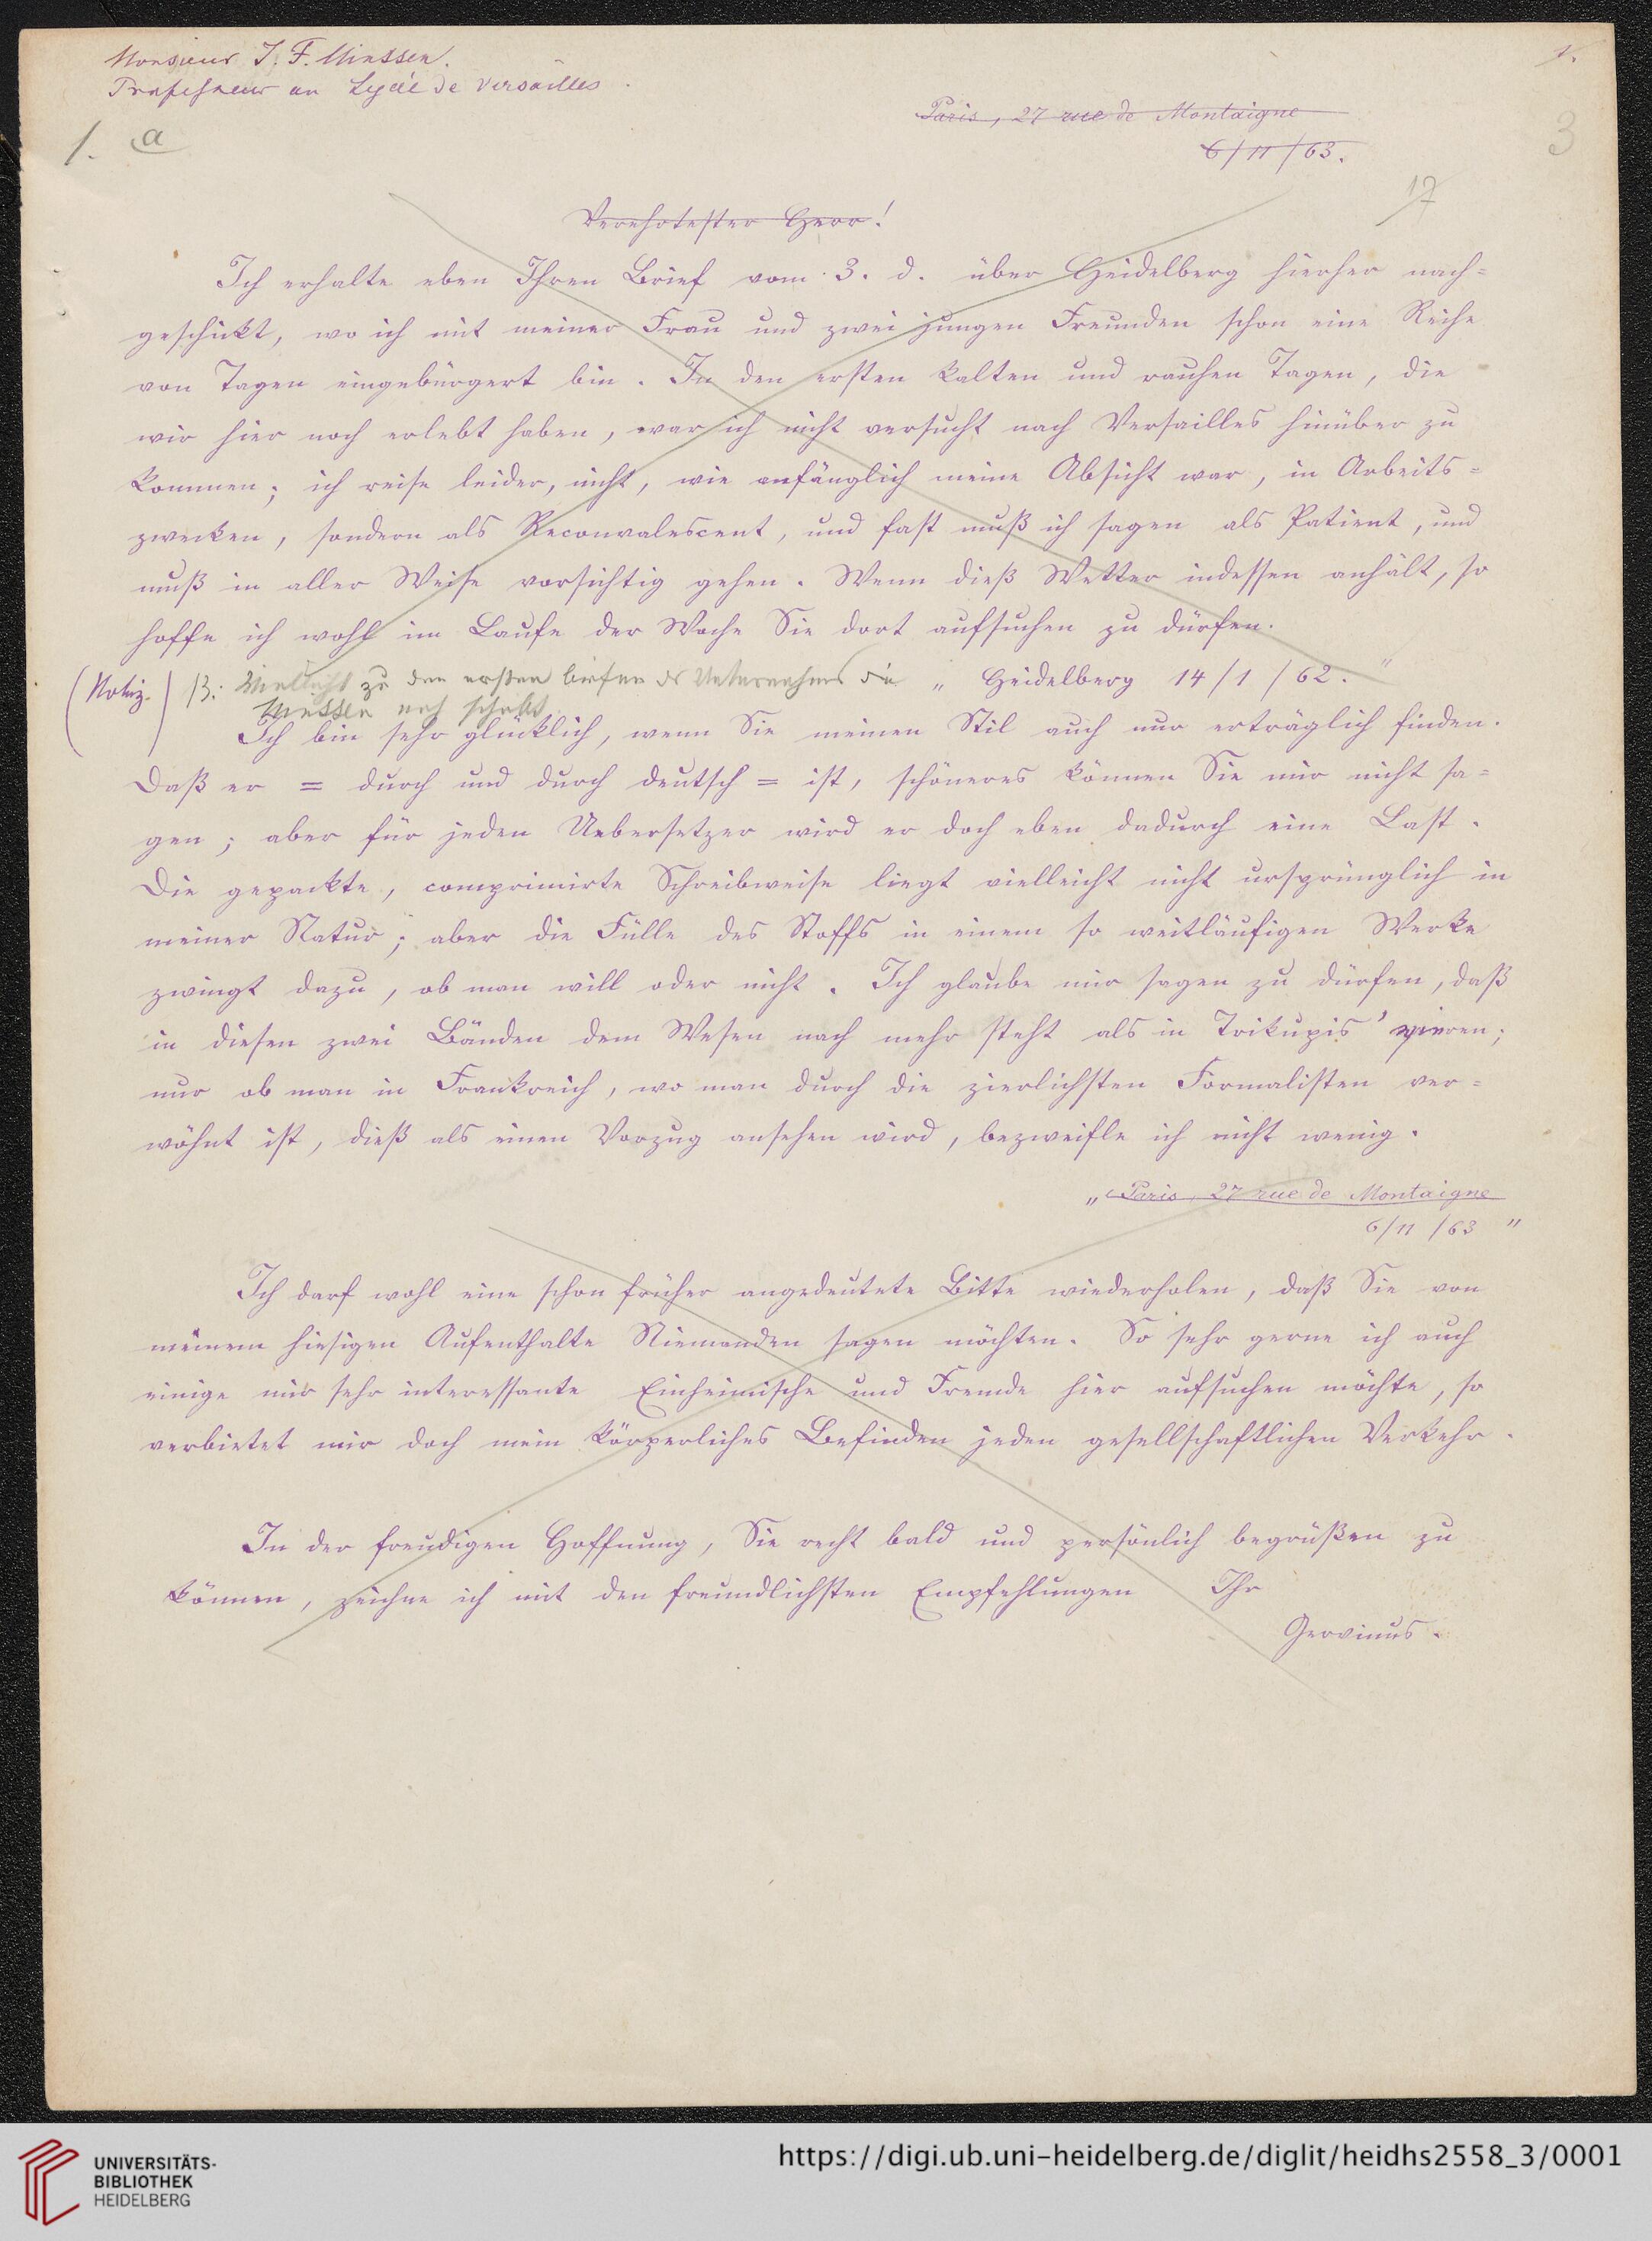 Monsieur J. F. Minssen.
Professeur au Lycée de Versailles
1.
1. a
Paris, 27 rue de Montaigne
6/11/63.
3
17
Verehrtester Herr!
Ich erhalte eben Ihren Brief vom 3. d. über Heidelberg hierher nach=
geschickt, wo ich mit meiner Frau und zwei jungen Freunden schon eine Reihe
von Tagen eingebürgert bin. In den ersten kalten und rauhen Tagen, die
wir hier noch erlebt haben, war ich nicht versucht nach Versailles hinüber zu
kommen; ich reise leider, nicht, wie anfänglich meine Absicht war, in Arbeits=
zwecken, sondern als Reconvalescent, und fast muß ich sagen als Patient, und
muß in aller Weise vorsichtig gehen. Wenn dieß Wetter indessen anhält, so
hoffe ich wohl im Laufe der Woche Sie dort aufsuchen zu dürfen.
(Notiz.) B: Vielleicht zu den ersten Briefen die „Heidelberg 14/1/62."
Minssen
Ich bin sehr glücklich, wenn Sie meinen Stil auch nur erträglich finden.
Daß er = durch und durch deutsch = ist, schöneres können Sie mir nicht sa=
gen; aber für jeden Uebersetzer wird er doch eben dadurch eine Last.
Die gepackte, comprimirte Schreibweise liegt vielleicht nicht ursprünglich in
meiner Natur; aber die Fülle des Stoffs in einem so weitläufigen Werke
zwingt dazu, ob man will oder nicht. Ich glaube mir sagen zu dürfen, daß
in diesen zwei Bänden dem Wesen nach mehr steht als in Trikupis' vieren;
nur ob man in Frankreich, wo man durch die zierlichsten Formalisten ver=
wöhnt ist, dieß als einen Vorzug ansehen wird, bezweifle ich nicht wenig.
„Paris, 27 rue de Montaigne
6/11/63"
Ich darf wohl eine schon früher angedeutete Bitte wiederholen, daß Sie von
meinem hiesigen Aufenthalte Niemanden sagen möchten. So sehr gerne ich auch
einige mir sehr interessante Einheimische und Fremde hier aufsuchen möchte, so
verbietet mir doch mein körperliches Befinden jeden gesellschaftlichen Verkehr.
In der freudigen Hoffnung, Sie recht bald und persönlich begrüßen zu
können, zeichne ich mit den freundlichsten Empfehlungen Ihr
Gervinus.
UNIVERSITÄTS-
BIBLIOTHEK
HEIDELBERG
https://digi.ub.uni-heidelberg.de/diglit/heidhs2558_3/0001